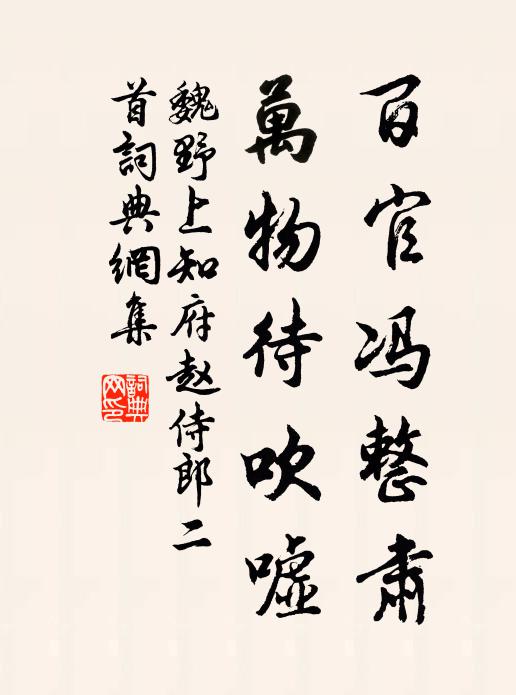 百官冯整肅
萬物待吹嘘
魏野上知府赵侍郎二
首詞典網集
詞典網印